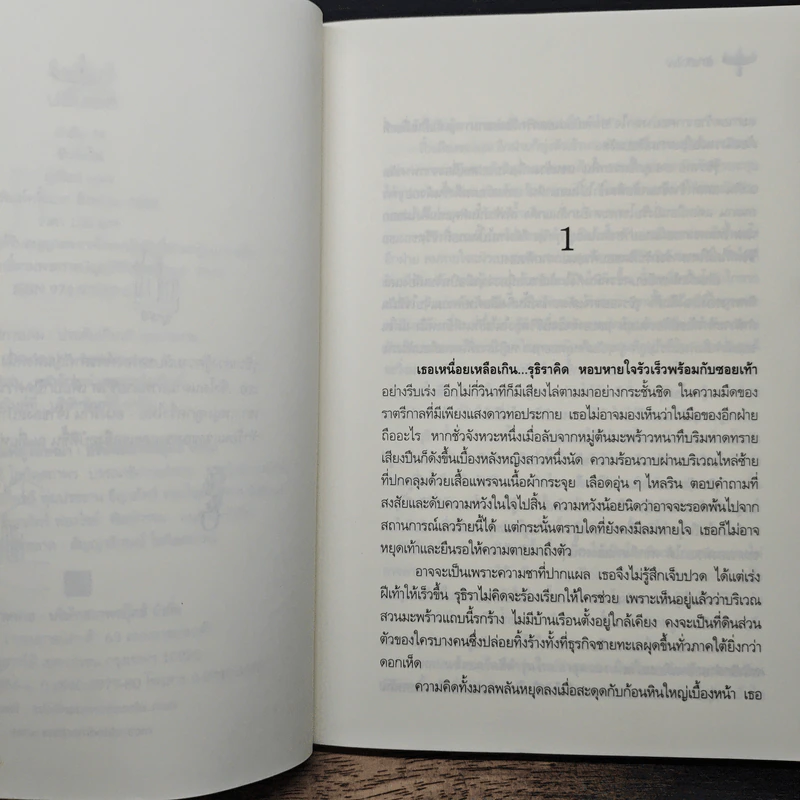 1
เธอเหนื่อยเหลือเกิน...รุธิราคิด หอบหายใจรัวเร็วพร้อมกับซอยเท้า
อย่างรีบเร่ง อีกไม่กี่วินาทีก็มีเสียงไล่ตามมาอย่างกระชั้นชิด ในความมืดของ
ราตรีกาลที่มีเพียงแสงดาวทอประกาย เธอไม่อาจมองเห็นว่าในมือของอีกฝ่าย
ถืออะไร หากชั่วจังหวะหนึ่งเมื่อลับจากหมู่ต้นมะพร้าวหนาทึบริมหาดทราย
เสียงปืนก็ดังขึ้นเบื้องหลังหญิงสาวหนึ่งนัด ความร้อนวาบผ่านบริเวณไหล่ซ้าย
ที่ปกคลุมด้วยเสื้อแพรจนเนื้อผ้ากระจุย เลือดอุ่นๆ ไหลริน ตอบคำถามที่
สงสัยและดับความหวังในใจไปสิ้น ความหวังน้อยนิดว่าอาจจะรอดพ้นไปจาก
สถานการณ์เลวร้ายนี้ได้ แต่กระนั้นตราบใดที่ยังคงมีลมหายใจ เธอก็ไม่อาจ
หยุดเท้าและยืนรอให้ความตายมาถึงตัว
อาจจะเป็นเพราะความชาที่ปากแผล เธอจึงไม่รู้สึกเจ็บปวด ได้แต่เร่ง
ฝีเท้าให้เร็วขึ้น รุธิราไม่คิดจะร้องเรียกให้ใครช่วย เพราะเห็นอยู่แล้วว่าบริเวณ
สวนมะพร้าวแถบนี้รกร้าง ไม่มีบ้านเรือนตั้งอยู่ใกล้เคียง คงจะเป็นที่ดินส่วน
ตัวของใครบางคนซึ่งปล่อยทิ้งร้างทั้งที่ธุรกิจชายทะเลผุดขึ้นทั่วภาคใต้ยิ่งกว่า
ดอกเห็ด
ความคิดทั้งมวลพลันหยุดลงเมื่อสะดุดกับก้อนหินใหญ่เบื้องหน้า เธอ